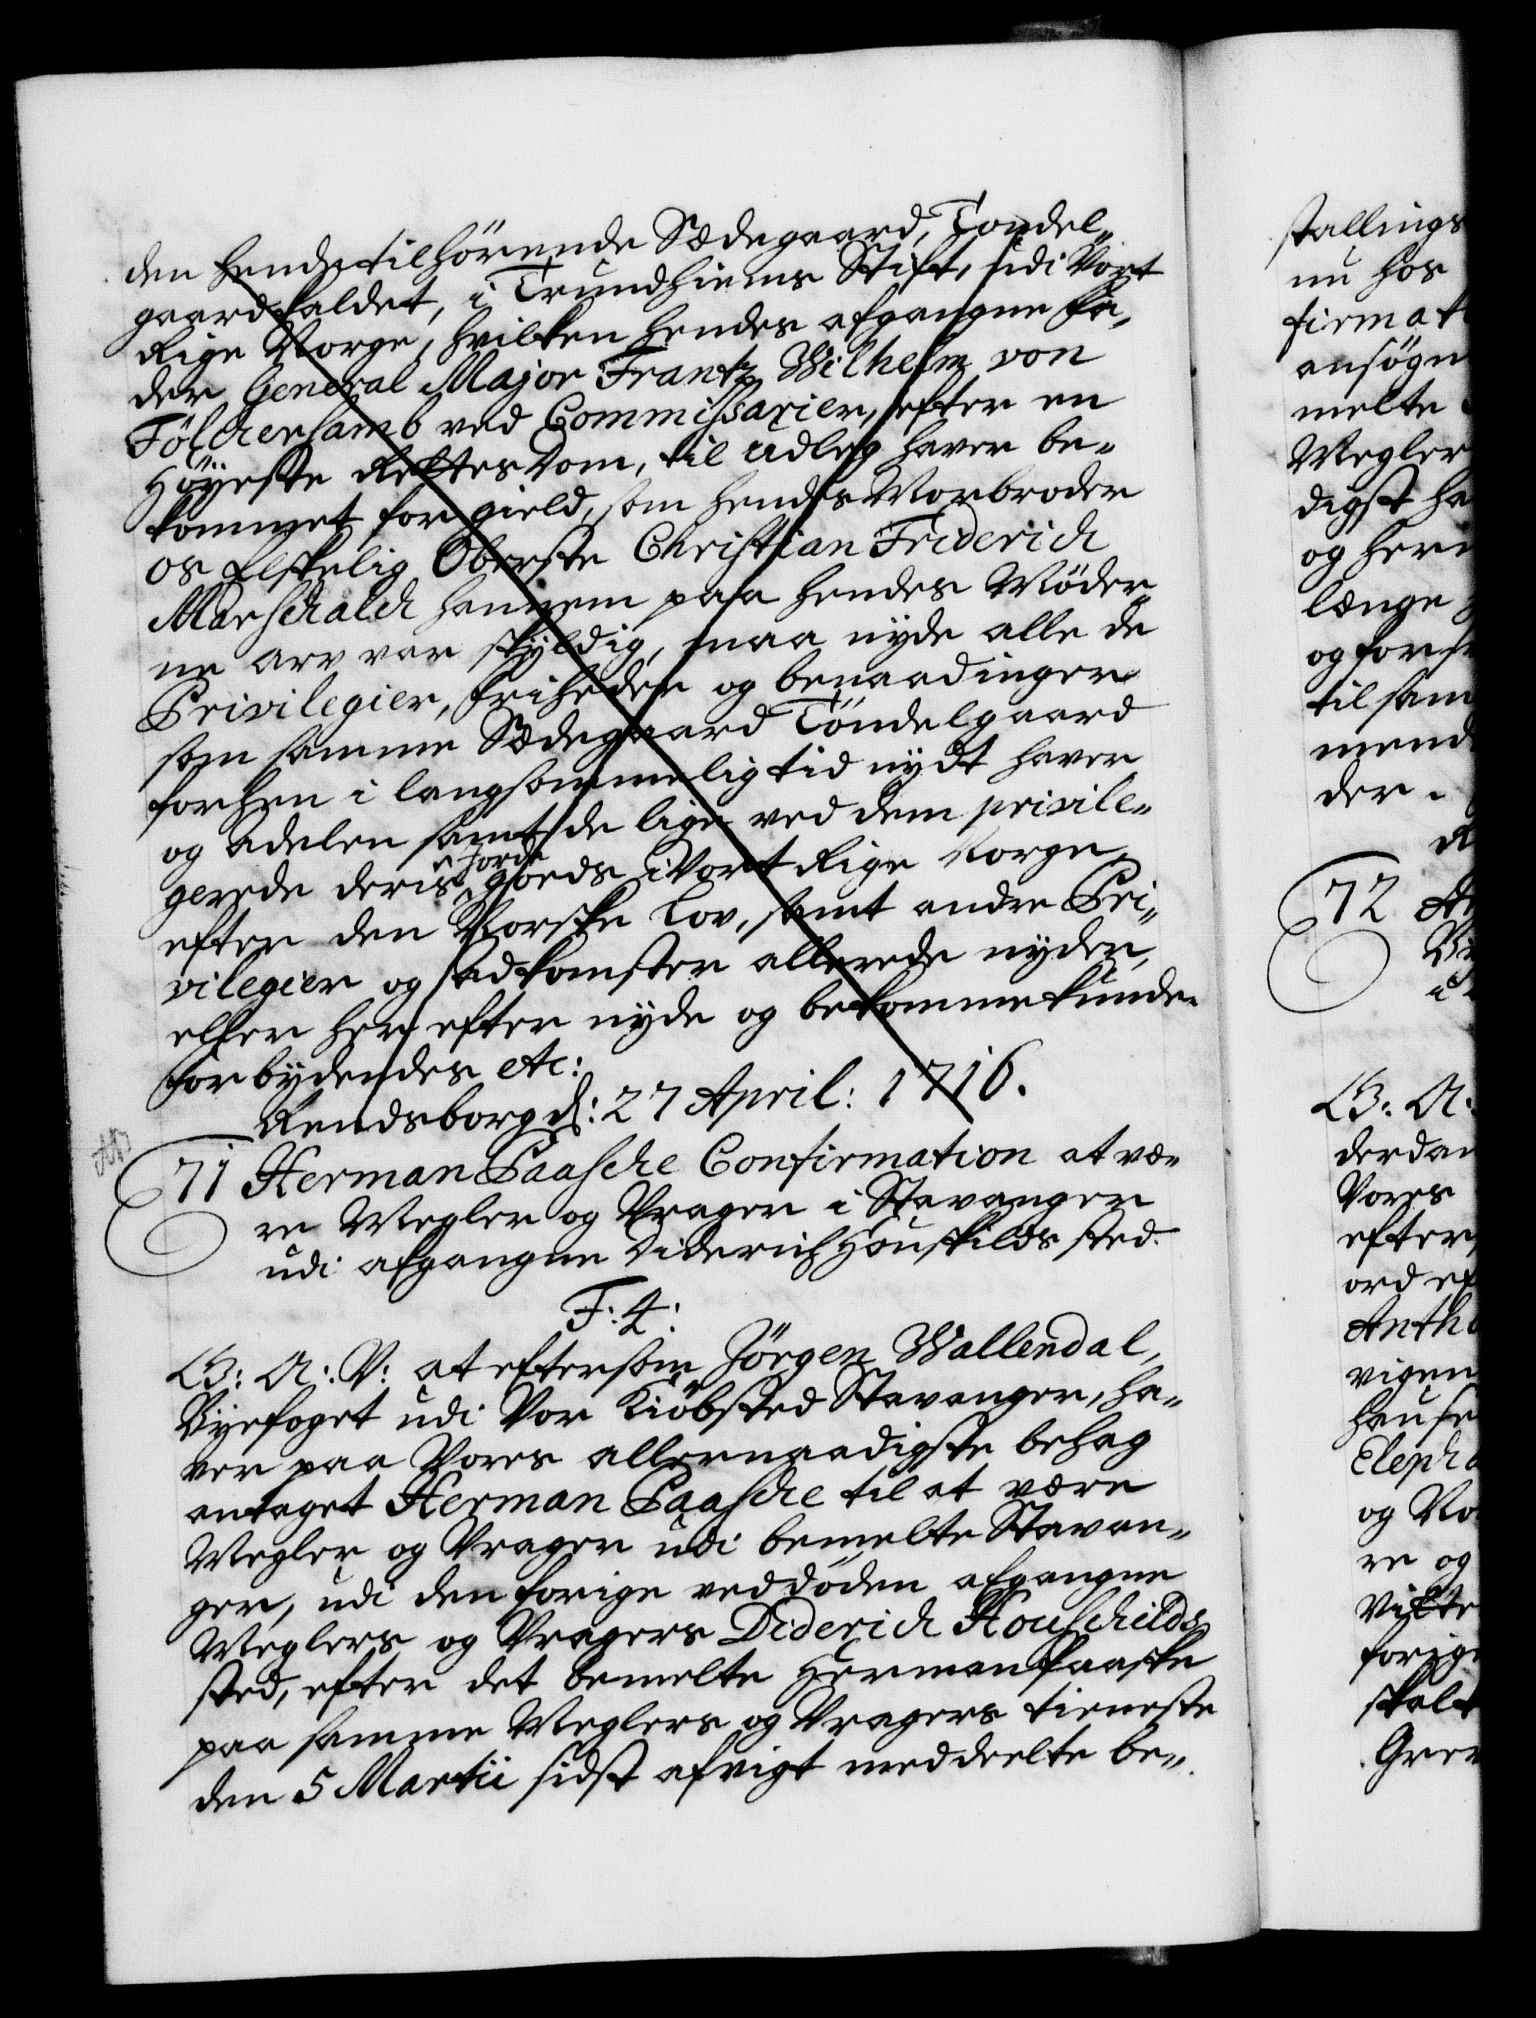 den hendes tilhörende Sædegaard, Tondel„
gaard kaldet, i Trundhiems Stift, udi Vort
Rige Norge, hvilken hendes afgangne Fa„
der General Major Frantz Wilhelm von
Fölchersamb ved Commissarier, efter en
Höyeste Rettes Dom, til udleg haver be„
kommet for gield, som hendes Morbroder
os Elskelig Oberste Christian Friderich
Marschalch hannem paa hendes Möder„
ne arv var skyldig, maa nyde alle de
Privilegier, friheder og benaadinger
som samme Sædegaard Töndelgaard
forhen i langsommelig tid nydt haver
og Adelen samt de lige ved dem privile„
gerede deris jorde goeds i Vort Rige Norge
efter den Norske Lov, samt andre Pri„
vilegier og adkomster allerede nyder,
eller her efter nyde og bekomme kunde.
Forbydendes etc:
Rendsborg d: 27 April: 1716.
71 Herman Paasche Confirmation at væ„
re Megler og Vrager i Stavanger
udi afgangne Diderich Houskilds sted.
F: 4:
G: A: V: at eftersom Jörgen Wallendal,
Byefoget udi Vor Kiöbsted Stavanger, ha„
ver paa Vores allernaadigste behag
antaget Herman Paasche til at være
Megler og Vrager udi bemelte Stavan„
ger, udi den forige ved döden afgangne
Meglers og Vragers Diderich Houschilds
sted, efter det bemelte Herman Paaske
paa samme Meglers og Vragers tieneste
den 5 Martii sidst afvigt meddeelte be„
stallings
nu hos
firmat
ansögn
melte
Megler
digst ha
og her
længe
og for
til sam
mend
der.
72
G: A:
derdan
Vores
efter
ord ef
Antho
vigen
hause
Eleph
og No
re og
Vitte
forige
skal
Grev